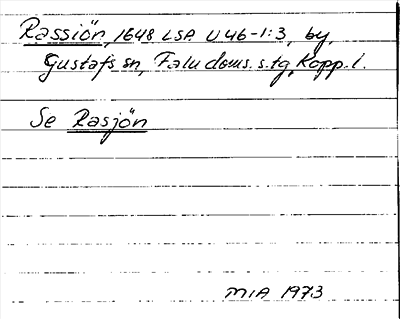 Rassiön, 1648 LSA U 46-1:3, by,
Gustafs sn, Falu doms. s.tg, Kopp. l.
Se Rasjön
MIA 1973